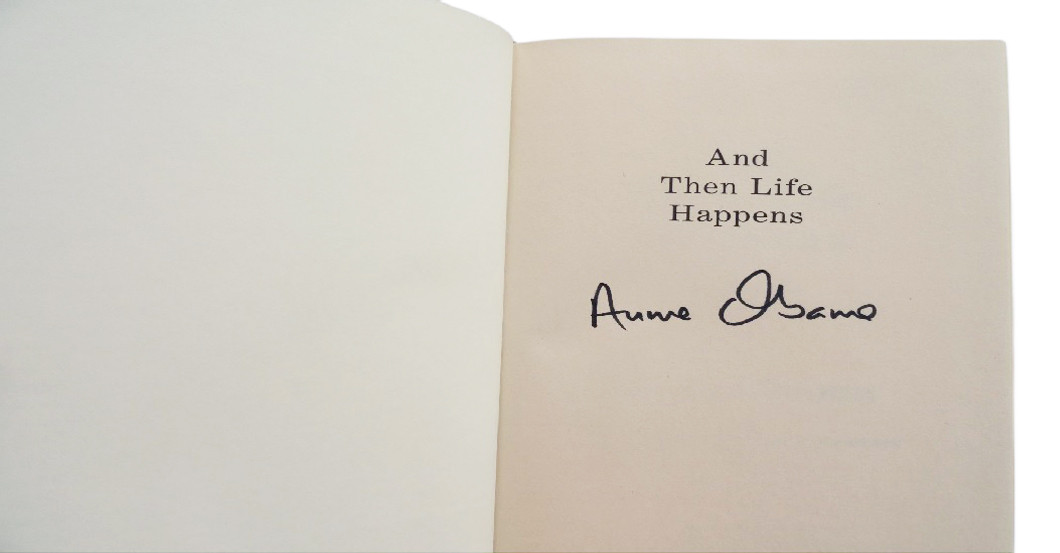 And
Then Life
Happens
Auma Obama